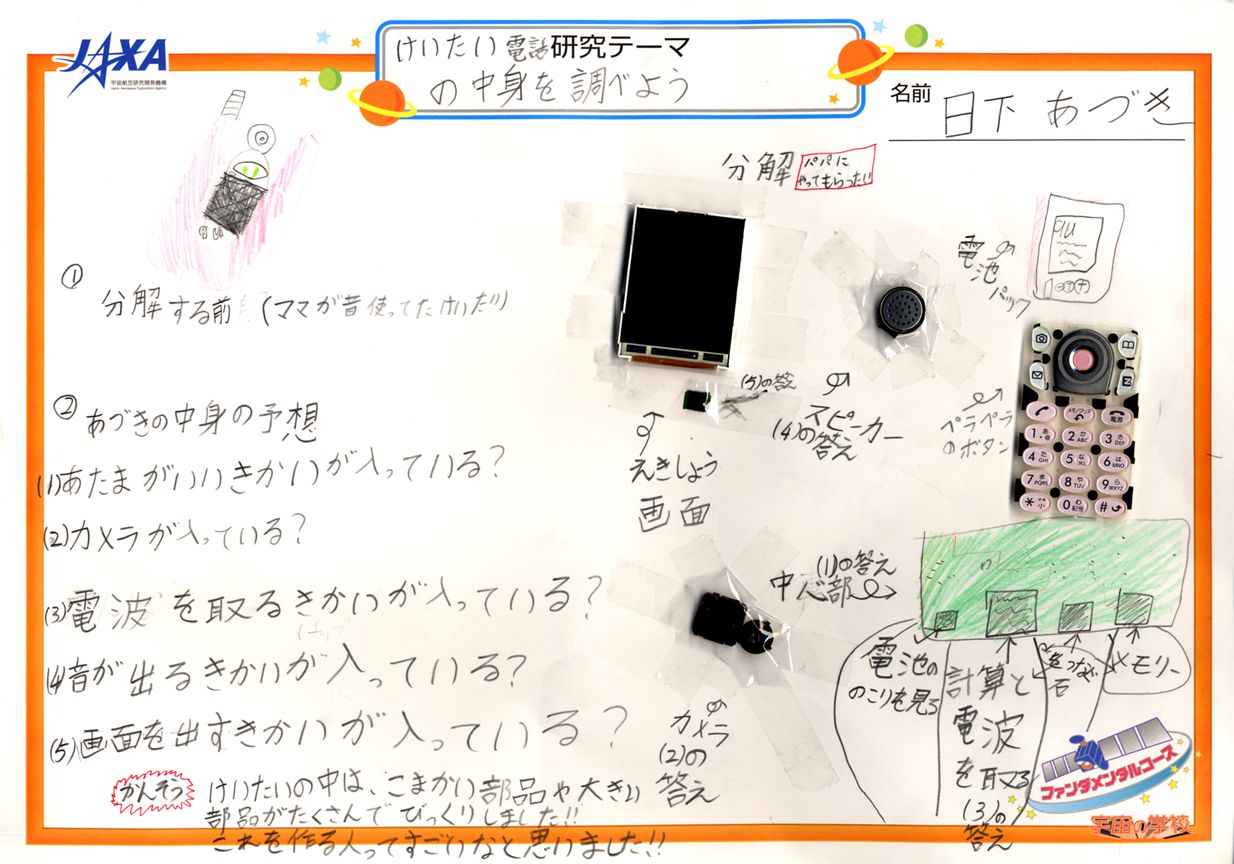 JAXA
宇宙航空研究開発機構
Japan Aerospace Exploration Agency
けいたい電話研究テーマ
の中身を調べよう
名前 日下 あづき
分解
パパに
やってもらったい
① 分解する前(ママが昔使ってたけいたい)
② あづきの中身の予想
(1)あたまがいいきかいが入っている?
(2)カメラが入っている?
(3)電波を取るきかいが入っている?
(4)音が出るきかいが入っている?
(5)画面を出すきかいが入っている?
かんそう
けいたいの中は、こまかい部品や大きい
部品がたくさんでびっくりしました!!
これを作る人ってすごいなと思いました!!
(5)の答え
えきしょう
画面
スピーカー
(4)の答え
電池パック
au
ペラペラ
のボタン
メモ/クリア
電源
1 あ @
2 か ABC
3 さ DEF
4 た GHI
5 な JKL
6 は MNO
7 ま PQRS
8 や TUV
9 ら WXYZ
* 小
0 わ 記号
#
カメラ
(2)の
答え
(1)の答え
中心部
電池の
のこりを見る
計算と
電波
を取る
(3)の
答え
メモリー
ファンダメンタルコース
宇宙の学校